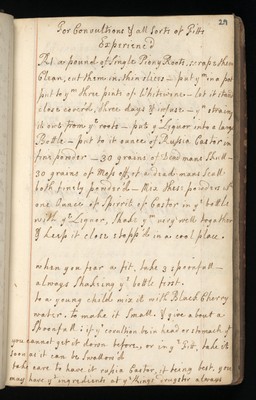 29
For Convultions & all sorts of Fitts
Experienc'd
Take a pound of Single Piony Roots, scrape them
Clean, cut them in thin slices - put ym in a pot
put to ym three pints of Whitewine - let it stand
close cover'd, three days & infuse - yn strain
it out from ye roots - put ye Liquor into a large
Bottle - put to it ounce of Rusia Castor in
fine powder - 30 grains of Dead mans Skull -
30 grains of Moss off, of a dead mans Scull
both finely powder'd - Mix these powders wth
one Ounce of Spirits of Castor in ye bottle
with ye Liquor, Shake ym very well together
& keep it close stopp'd in a cool place.
when you fear a fit, take 3 spoonfull -
always Shaking ye bottle first.
to a young childe mix it with Black Cherry
water, to make it Small, & give about a
Spoonfull: if ye convltion be in head or stomach if
you cannot get it down before, or in ye Fitt, take it
soon as it can be Swallow'd
take care to have it rusia Castor, it being best, you
may have ye ingredients at ye kings
always